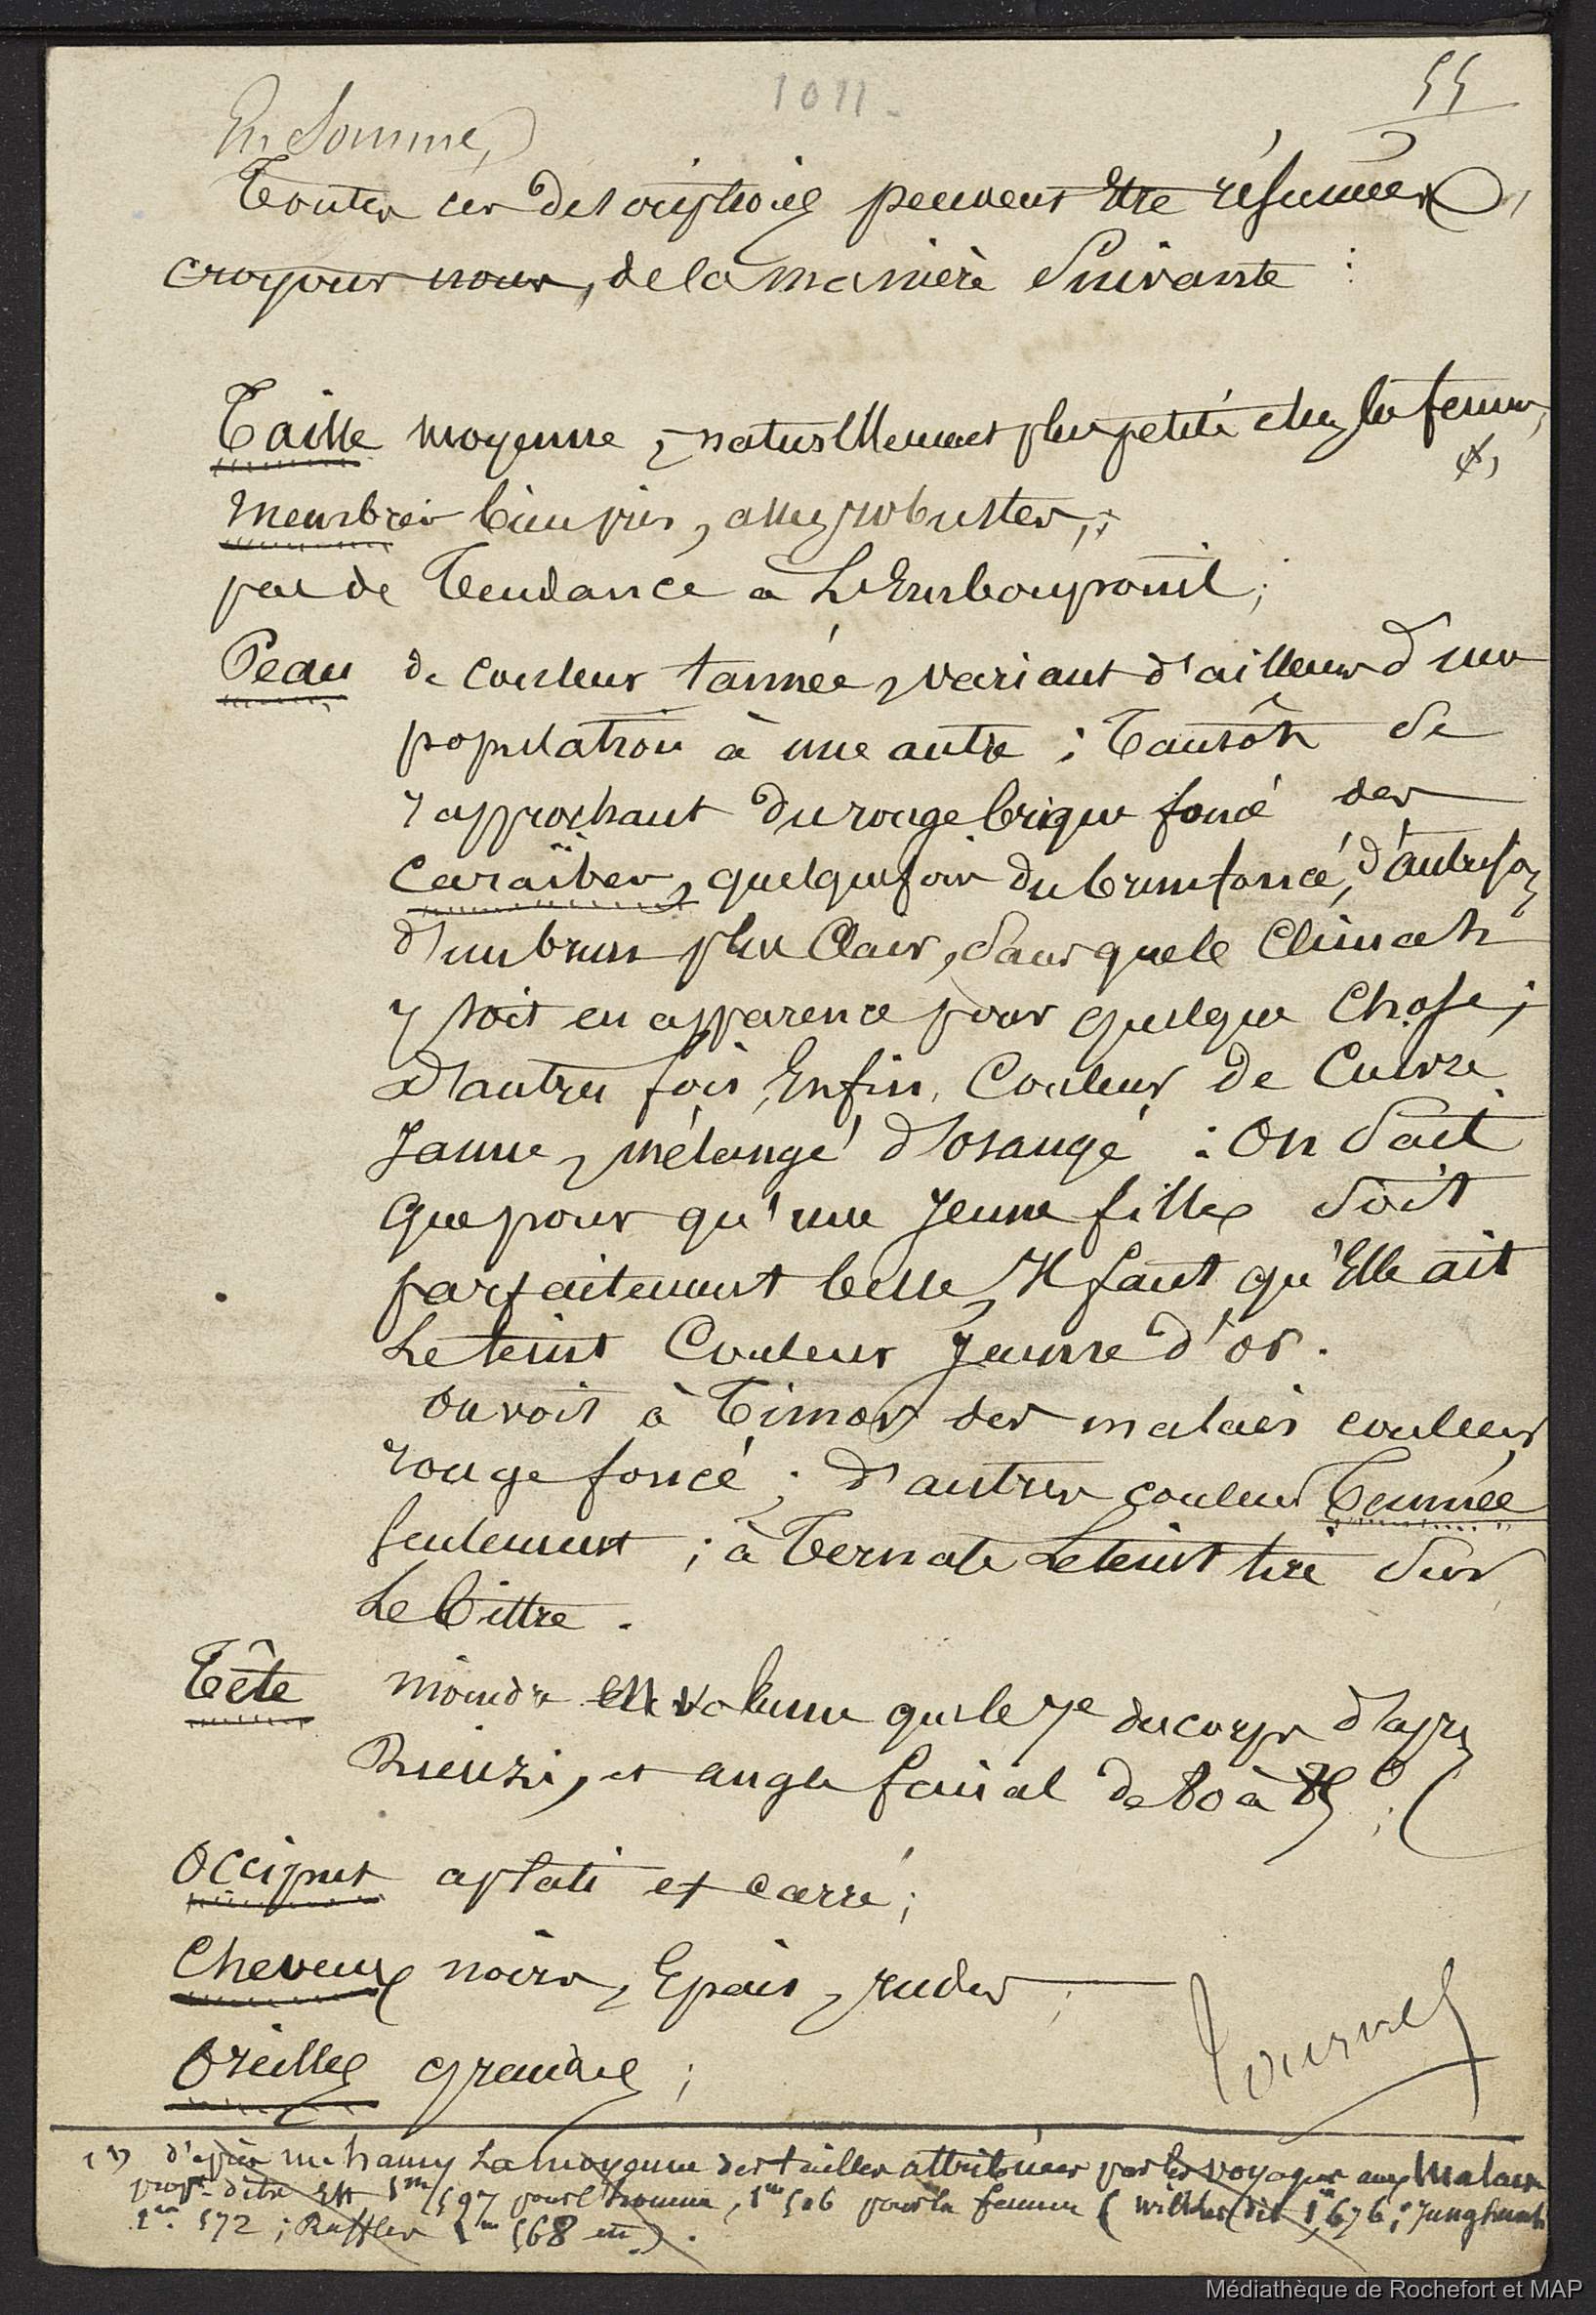 1011
55
En Somme,
Toutes ces descriptions peuvent Etre résumées,
croyons nous, de la manière Suivante :
Taille moyenne, naturellement plus petite chez la femme,
membres bien pris, assez robustes,;
pas de Tendance a L'Embonpoint;
Peau de couleur tannée, variant d'ailleurs d'une
population à une autre ; Tantôt Se
rapprochant du rouge brique foncé des
Caraïbes, quelquefois du brun foncé, d'autrefois
d'un brun plus Clair, Sans que le Climat
y soit en apparence pour quelque Chose;
d'autres fois, Enfin, Couleur de Cuivre
Jaune, mélangé d'orangé : On Sait
Que pour qu'une Jeune fille Soit
parfaitement belle, Il faut qu'Elle ait
Le teint Couleur Jaune d'or.
On voit à Timor des malais couleur
rouge foncé ; d'autres couleur Tannée
Seulement ; à Ternate Le teint tire Sur
Le Bistre.
Tête moindre en volume que le 7e du corps d'après
Rienzi, et angle facial de 80 à 85°;
Occiput aplati et carré;
Cheveux noirs, Epais, rudes ;
Oreilles grandes ;
Tournez
(1) d'après Mr hamy La moyenne des tailles attribuées par les voyageurs aux Malais
propt dits Est 1m 597 pour l'homme, 1m 506 pour la femme ( Wilkes dit 1m 676; Junghuhn
1m. 572 ; Raffles 1m 568 etc).
Médiathèque de Rochefort et MAP